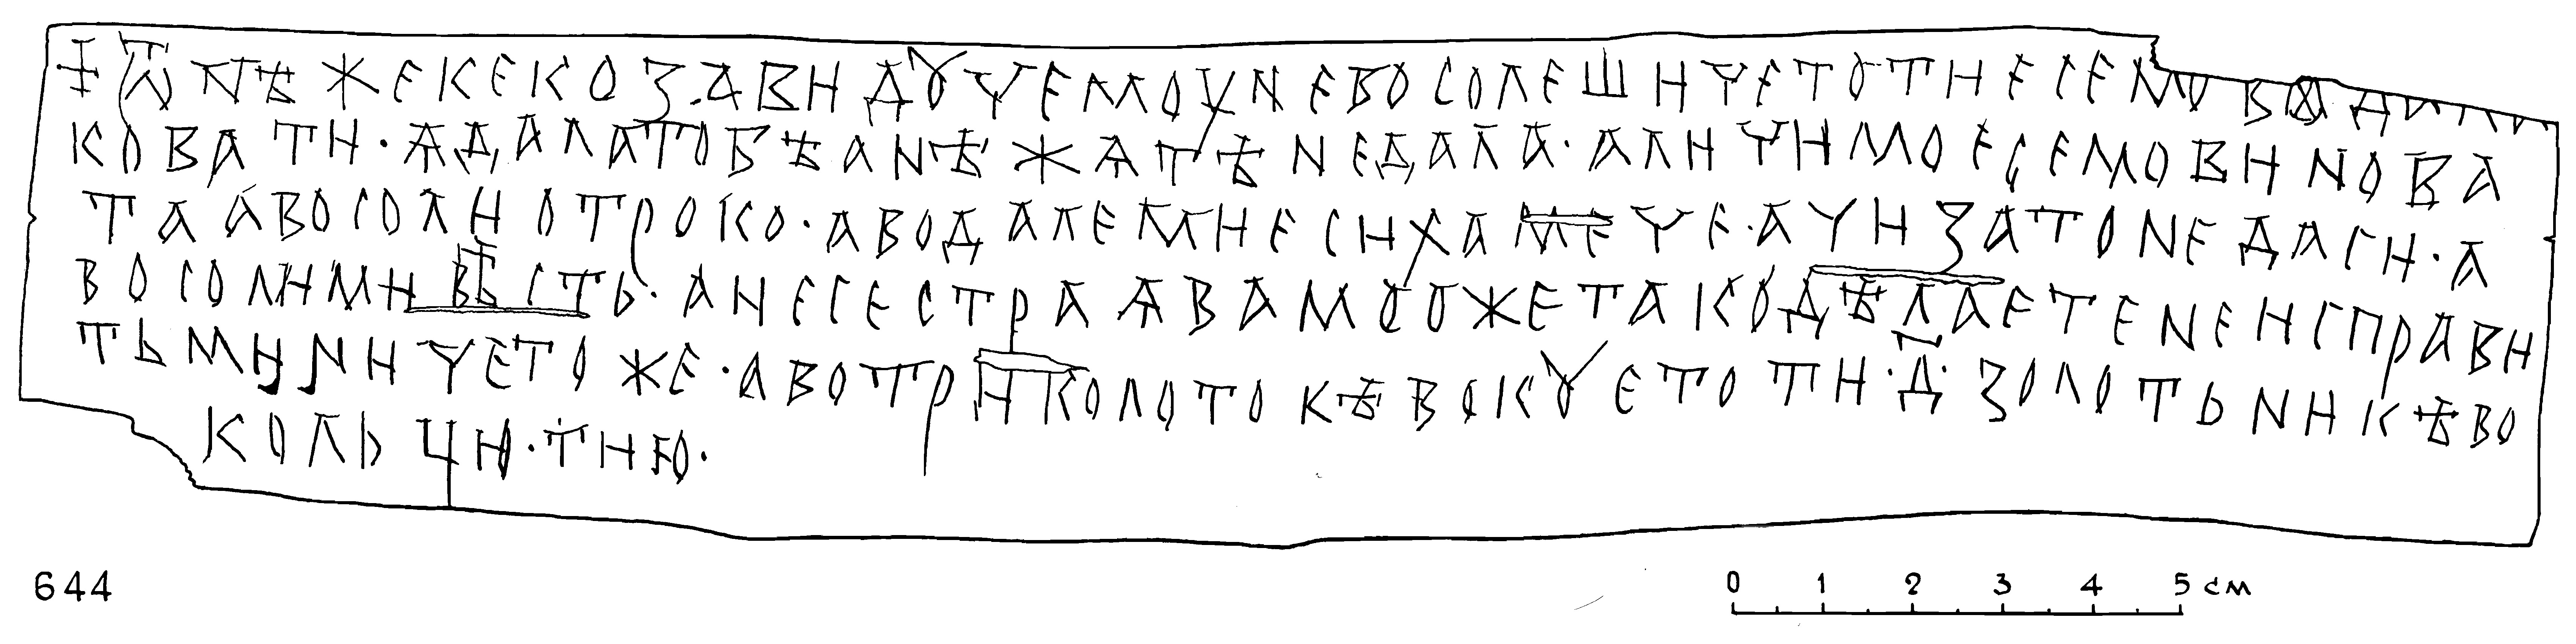 ‡ ѿ нѣжекекозавидꙋцемоуневосолешицетотиесемово дала
ковати·ѧдалатобѣанѣжѧтѣнедала·алицимоесемовинова
таавосолиотроко·аводалемиесихамеце·ацизатонедаси·а
восолимивѣсть·анесестраѧвамоожетакодѣлаетенеисправи
тьминицетоже·автриколотокѣвокꙋетоти·д҃·золотьникѣво
кольци·тию·
644
0 1 2 3 4 5 см